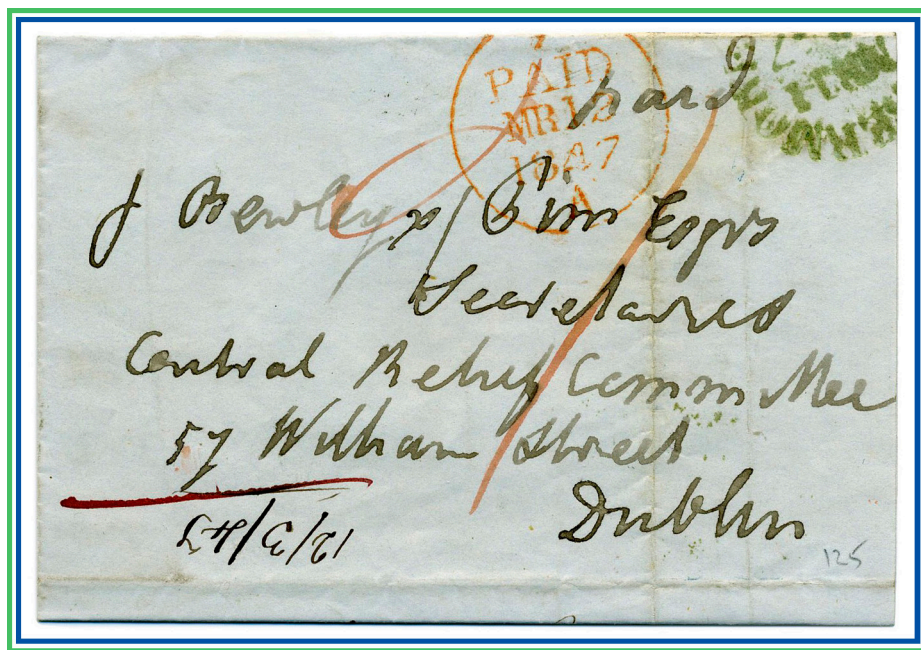 PAID
MR 15
1847
A
paid
J Bewley & J Pim Esqrs
Secretaries
Central Relief Committee
57 William Street
Dublin
12/3/47
125